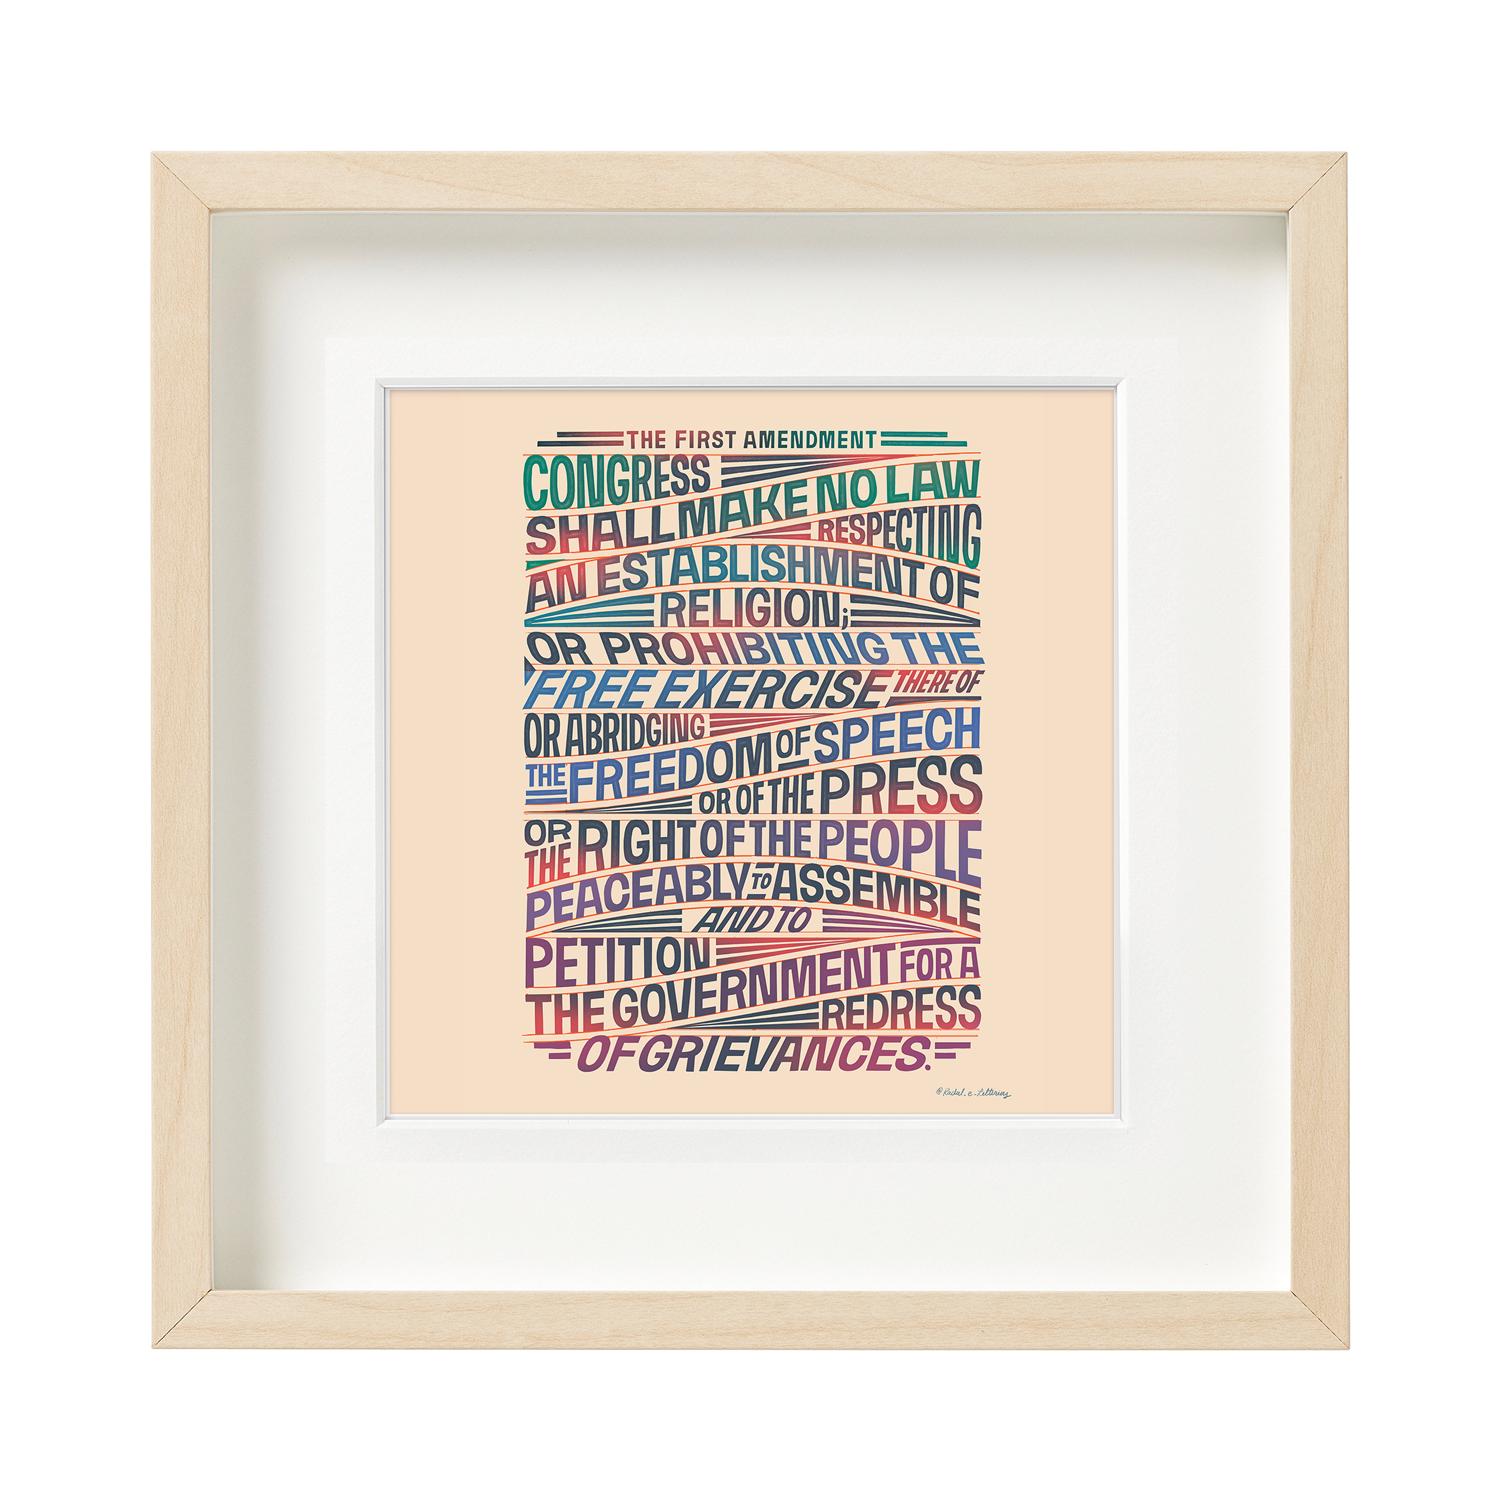 THE FIRST AMENDMENT
CONGRESS
SHALL MAKE NO LAW
RESPECTING
AN ESTABLISHMENT OF
RELIGION;
OR PROHIBITING THE
FREE EXERCISE THERE OF
OR ABRIDGING
THE FREEDOM OF SPEECH
OR OF THE PRESS
OR THE RIGHT OF THE PEOPLE
PEACEABLY TO ASSEMBLE
AND TO
PETITION
THE GOVERNMENT FOR A
REDRESS
OF GRIEVANCES.
@Rachel.e.Lettering